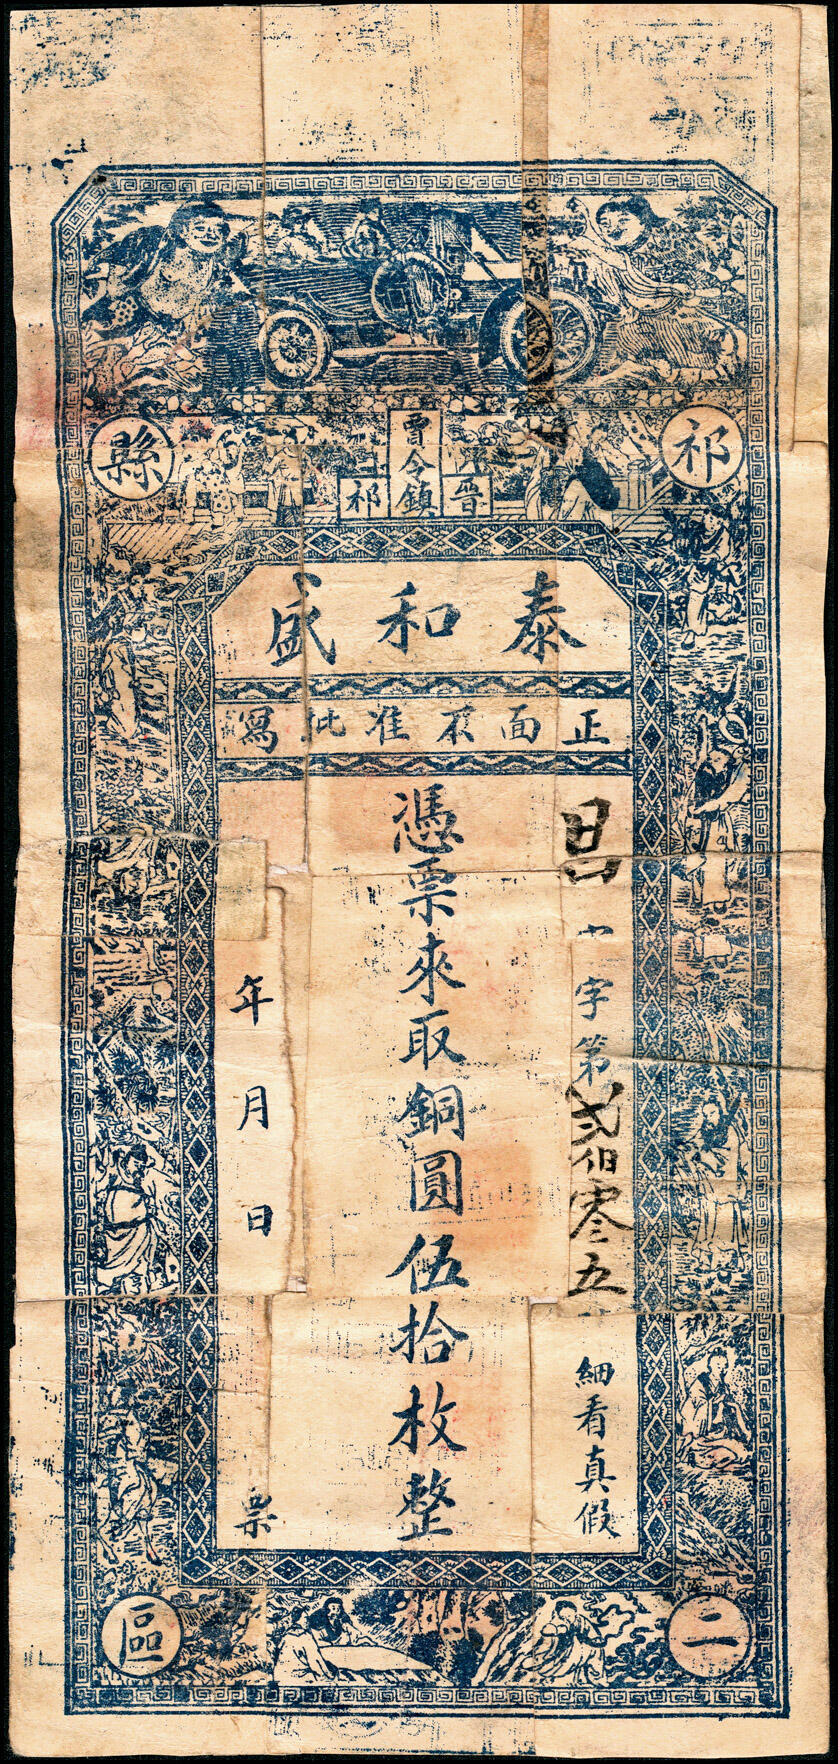 祁縣
晉祁
賈令鎮
泰和盛
正面不准批寫
昌
字第貳佰零五
細看真假
憑票來取銅圓伍拾枚整
年月日
票
二區